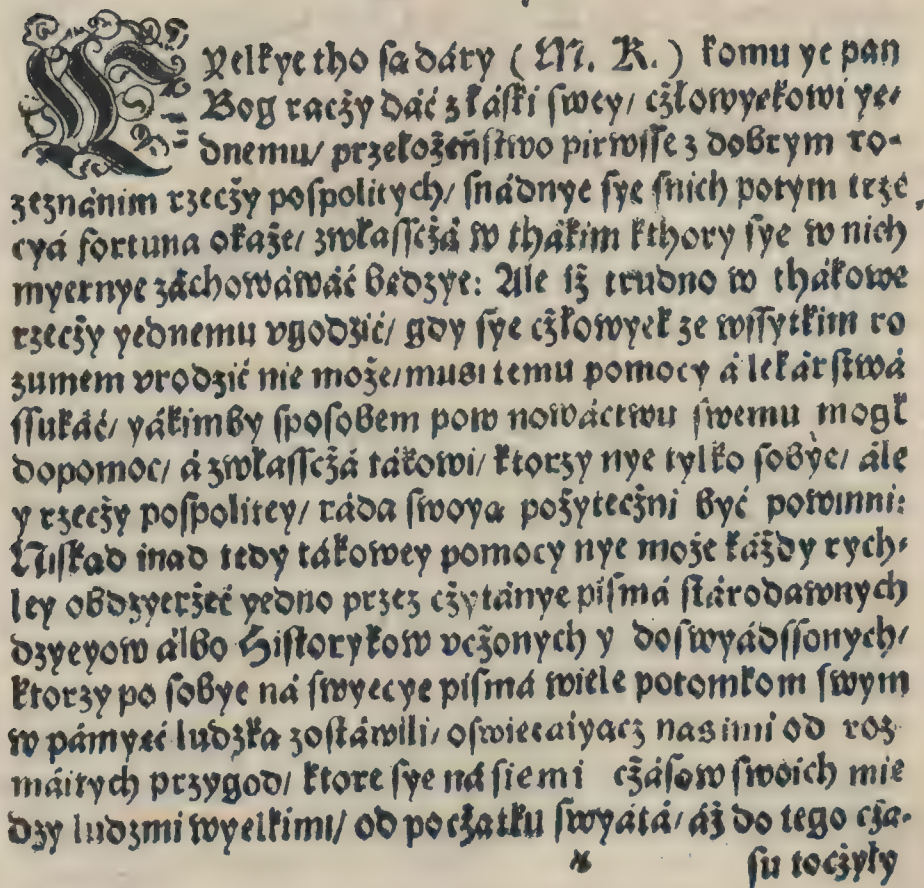 WYelkye tho są dáry ( M. K. ) komu ye pan
Bog racży dáć z łáſki ſwey/ cżłowyekowi ye⸗
dnemu/ przełożeńſtwo pirwſſe z dobrym ro⸗
zeznánim rzecży poſpolitych/ ſnádnye ſye ſnich potym trze
cyá fortuna okaże/ zwłaſſcżá w thákim kthory ſye w nich
myernye záchowáwáć będzye: Ale iż trudno w thákowe
rzecży yednemu vgodzić/ gdy ſye cżłowyek ze wſſytkim ro
zumem vrodzić nie może/ muſi temu pomocy á lekárſtwá
ſſukáć/ yákimby ſpoſobem pow nowáctwu ſwemu mogł
dopomoc/ á zwłaſſcżá tákowi/ ktorzy nye tylko ſobye/ ále
y rzecży poſpolitey/ rádą ſwoyą pożytecżni być powinni:
Niſkąd inąd tedy tákowey pomocy nye może káżdy rych⸗
ley obdzyerżeć yedno przez cżytánye piſmá ſtárodawnych
dzyeyow álbo Hiſtorykow vcżonych y doſwyádſſonych/
ktorzy po ſobye ná ſwyecye piſmá wiele potomkom ſwym
w pámyęć ludzką zoſtáwili/ oſwiecaiyącz nas imi od roz
máitych przygod/ ktore ſye ná ſiemi cżáſow ſwoich mie
dzy ludzmi wyelkimi/ od pocżątku ſwyátá/ áż do tego cża⸗
ſu tocżyły